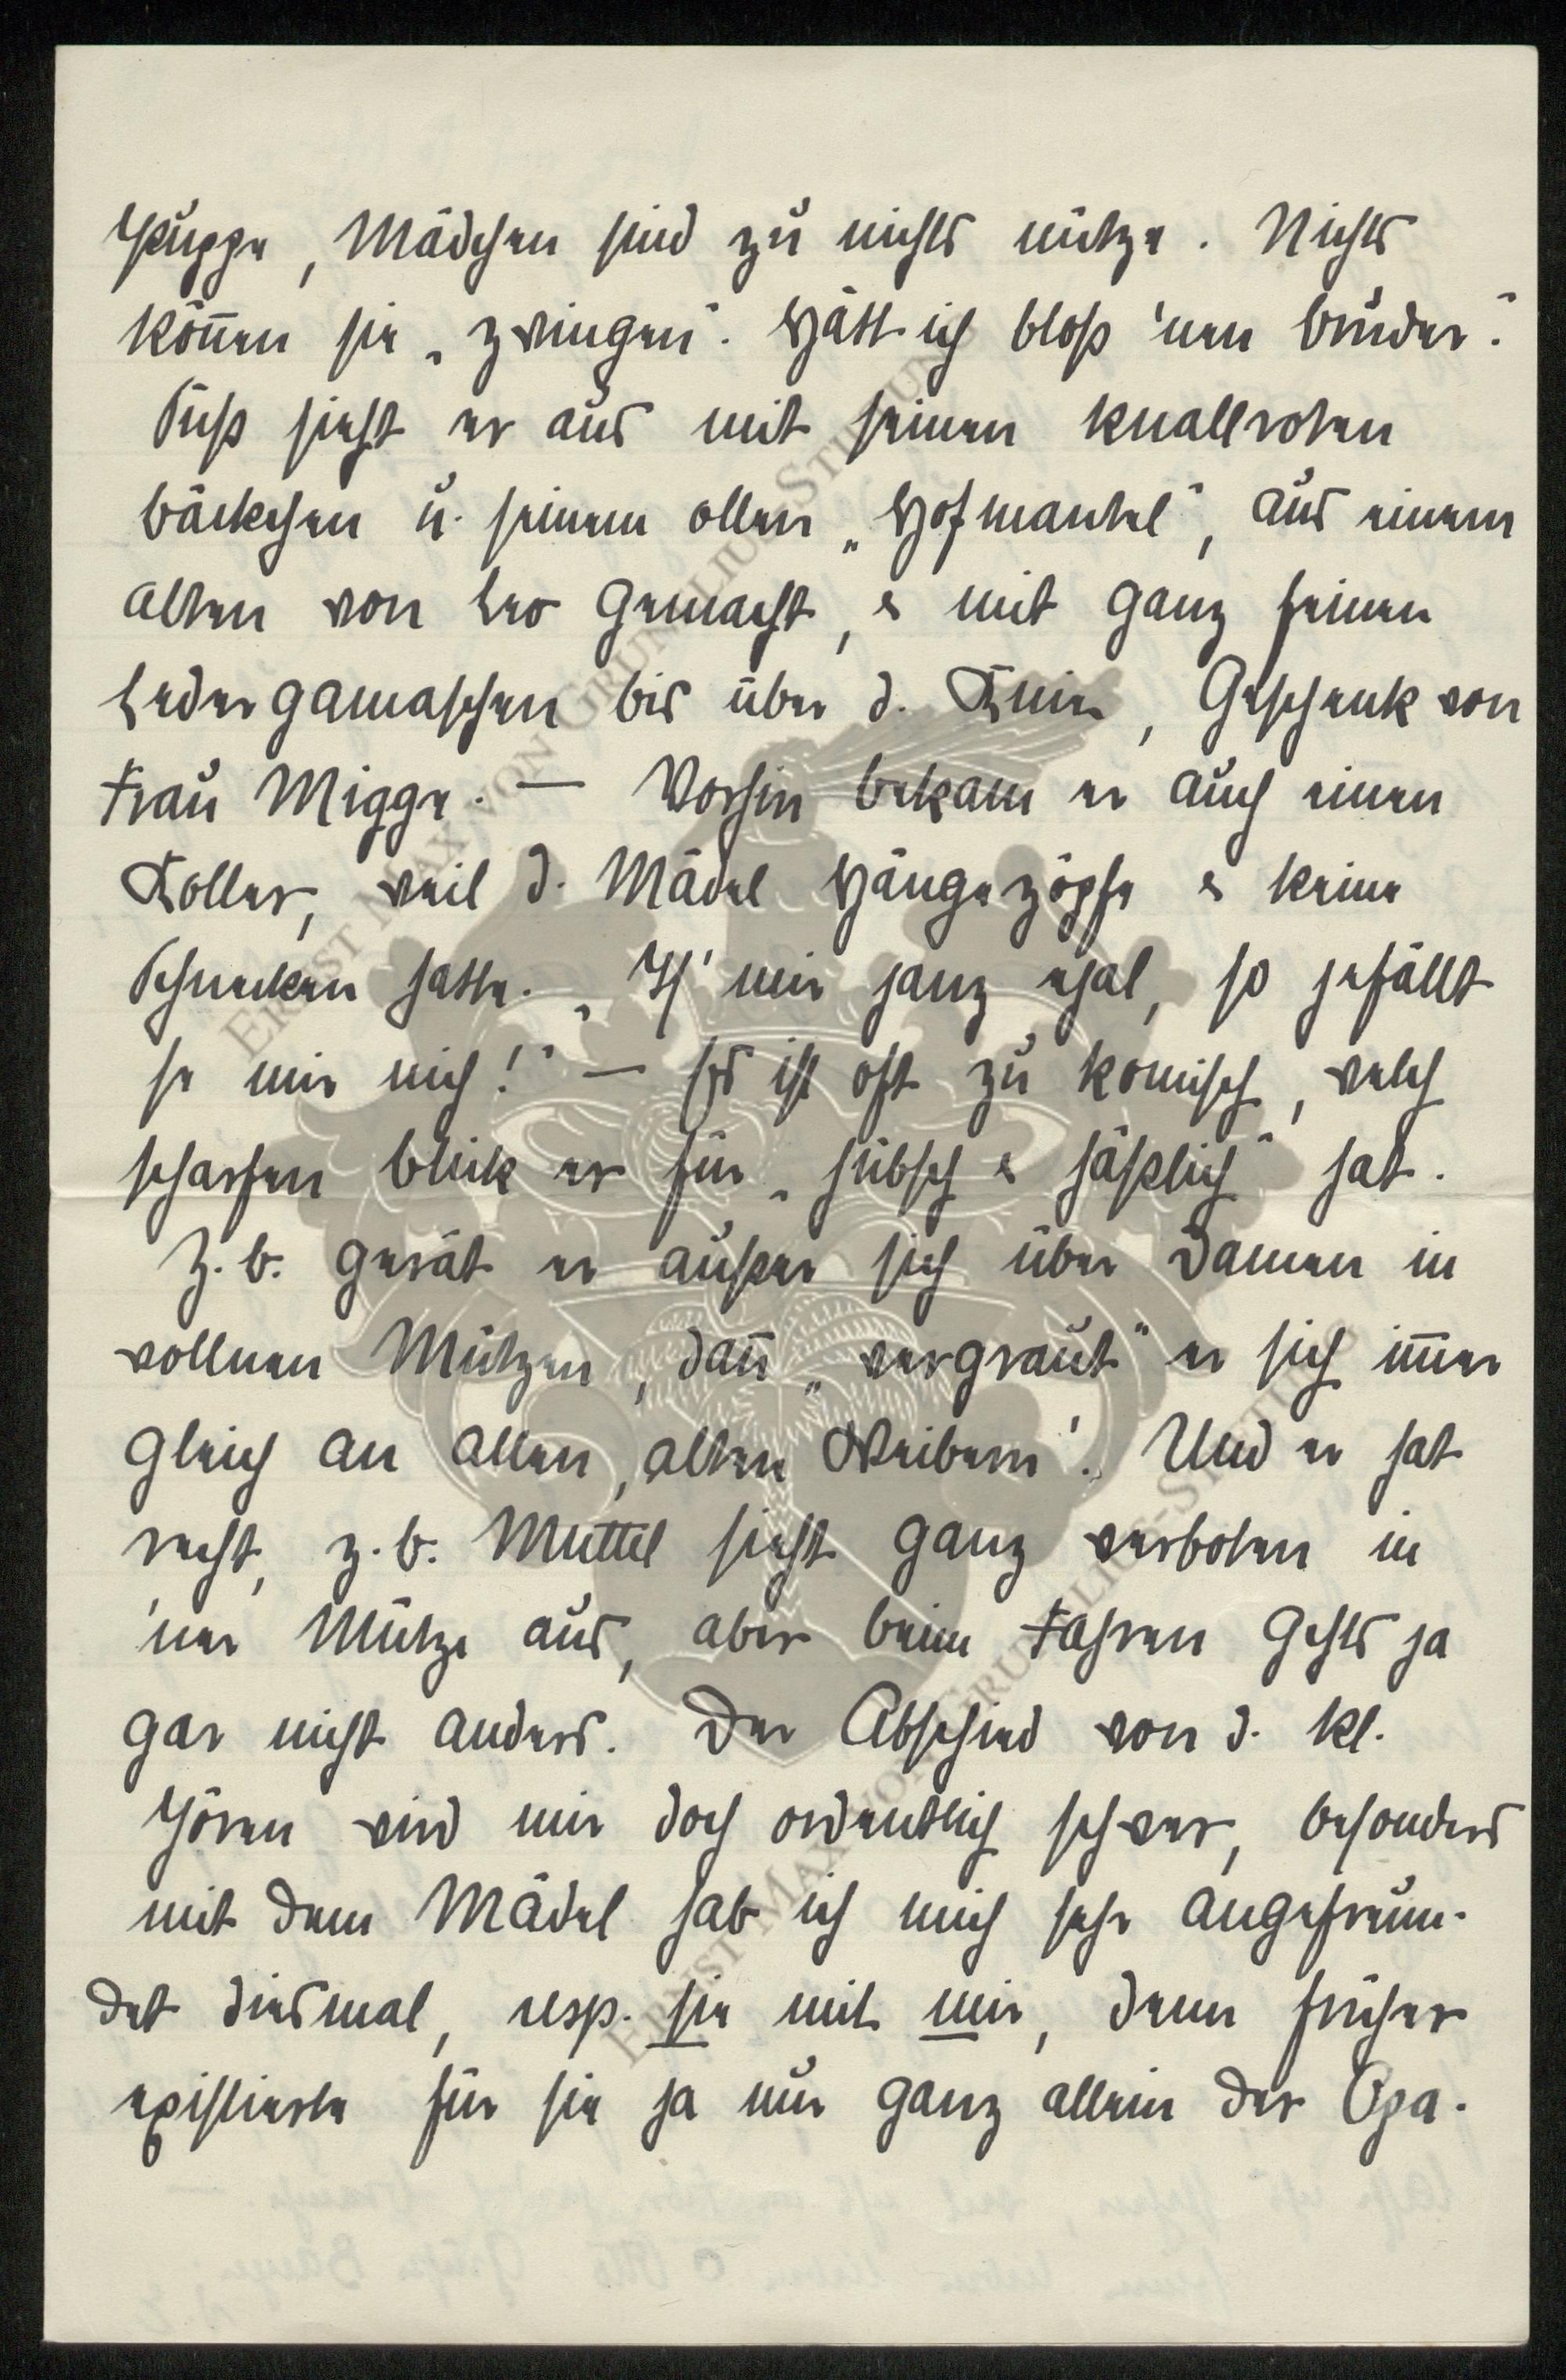 Puppe, Mädchen sind zu nichts nütze. Nichts
können sie „zwingen". Hätt ich bloß 'nen Bruder."
Süß sieht er aus mit seinen knallroten
Bäckchen u. seinem ollen „Hofmantel", aus einem
alten von Leo gemacht, & mit ganz feinen
Ledergamaschen bis über d. Knie, Geschenk von
Frau Migge. — Vorhin bekam er auch einen
Koller, weil d. Mädel Hängezöpfe & keine
Schnecken hatte. „Is' mir janz ejal, so jefällt
se mir nich!" — Es ist oft zu komisch, welch
scharfen Blick er für „hübsch & häßlich" hat.
Z.b. gerät er außer sich über Damen in
wollnen Mützen, dan̄ „vergraut" er sich im̄er
gleich an allen ‚alten Weibern'. Und er hat
recht, z.b. Muttel sieht ganz verboten in
'ner Mütze aus, aber beim Fahren gehts ja
gar nicht anders. Der Abschied von d. kl.
Jören wird mir doch ordentlich schwer, besonders
mit dem Mädel hab ich mich sehr angefreun-
det diesmal, resp. sie mit mir, denn früher
existierte für sie ja nur ganz allein der Opa.
ERNST MAX VON GRUNELIUS-STIFTUNG
ERNST MAX VON GRUNELIUS-STIFTUNG